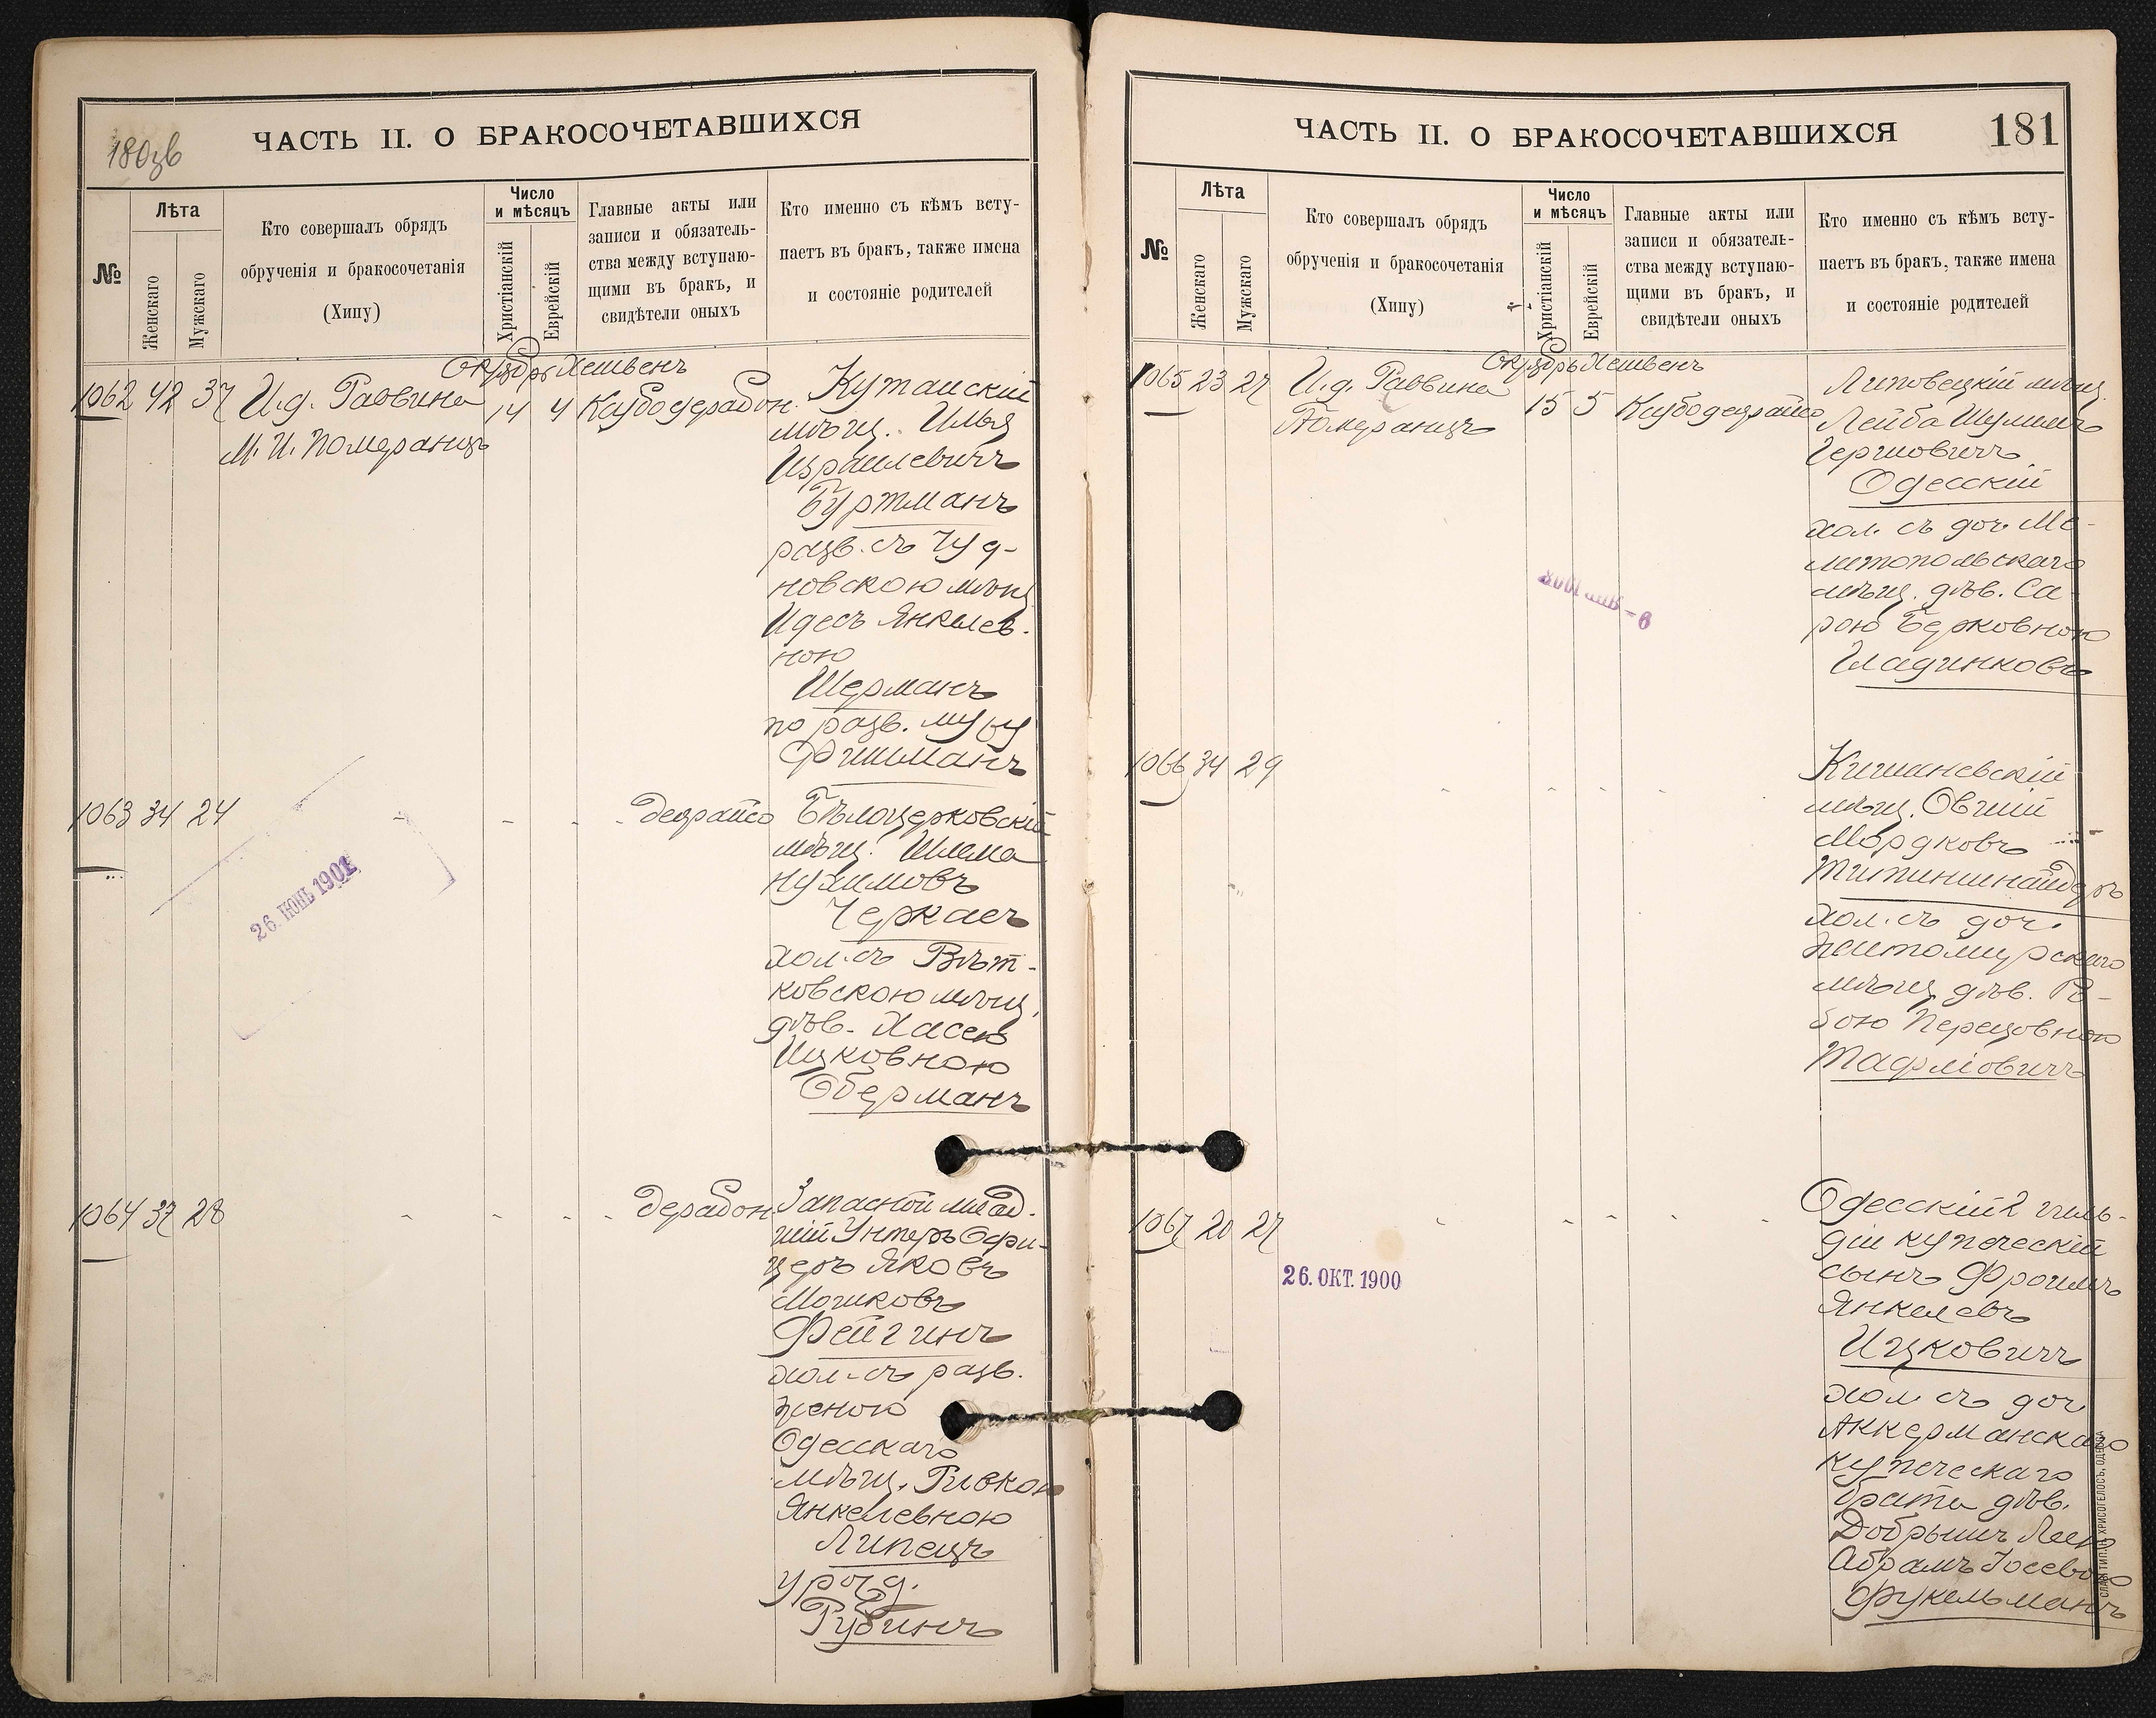 180зв
ЧАСТЬ II. О БРАКОСОЧЕТАВШИХСЯ
№
Лѣта
Женскаго
Мужскаго
Кто совершалъ обрядъ
обрученія и бракосочетанія
(Хипу)
Число
и мѣсяцъ
Христіанскій
Еврейскій
Главные акты или
записи и обязатель-
ства между вступаю-
щими въ бракъ, и
свидѣтели оныхъ
Кто именно съ кѣмъ всту-
паетъ въ бракъ, также имена
и состояніе родителей
Октябрь Хешвенъ
1062 42 37 И.д. Раввина 14 4 Кусбо дерабон.
М. И. Померанцъ
Кутаискій
мѣщ. Илья
Израилевичъ
Буртманъ
разв. съ Чуд-
новскою мѣщ.
Идесъ Янкелев-
ною
Шерманъ
по разв. мужу
Фишманъ
1063 34 24 децрайсо
Бѣлоцерковскій
мѣщ. Шлема
Нухимовъ
Черкасъ
хол. съ Вѣт-
ковскою мѣщ.
дѣв. Хасею
Ицковною
Оберманъ
26. ІЮНЬ 1901
1064 37 28 дерабон
Запасной млад-
шій Унтеръ Офи-
церъ Яковъ
Мошковъ
Фейгинъ
хол. съ разв.
женою
Одесскаго
мѣщ. Ривкою
Янкелевною
Липецъ
урожд.
Рубинъ
ЧАСТЬ II. О БРАКОСОЧЕТАВШИХСЯ
181
№
Лѣта
Женскаго
Мужскаго
Кто совершалъ обрядъ
обрученія и бракосочетанія
(Хипу)
Число
и мѣсяцъ
Христіанскій
Еврейскій
Главные акты или
записи и обязатель-
ства между вступаю-
щими въ бракъ, и
свидѣтели оныхъ
Кто именно съ кѣмъ всту-
паетъ въ бракъ, также имена
и состояніе родителей
Октябрь Хешвенъ
1065 23 27 И.д. Раввина 15 5 Кусбо децрайсо
Померанцъ
Липовецкій мѣщ.
Лейба Шулимъ
Гершовичъ
Одесскій
хол. съ доч. Ме-
литопольскаго
мѣщ. дѣв. Са-
рою Берковною
Гладинковъ
1066 34 29
Кишиневскій
мѣщ. Овшій
Мордковъ
хол. съ доч.
Житомирскаго
мѣщ. дѣв. Рэ-
бою Перецовною
Тафліовичъ
1067 20 27
26. ОКТ. 1900
Одесскій 2 гиль-
діи купеческій
сынъ Фроимъ
Янкелевъ
Ицковичъ
хол. съ доч.
Аккерманскаго
купеческаго
брата дѣв.
Добрышъ Леею
Абрамъ Іосевою
Фукельманъ